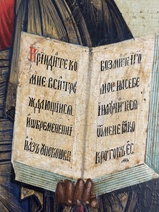 Прїидите ко
мне вси трꙋ
ждающїисѧ
и ѡбремененнїи
и азъ покою вы
возмите иго
мое на себе
и наꙋчитесѧ
ѿ мене ꙗко
кротокъ ес